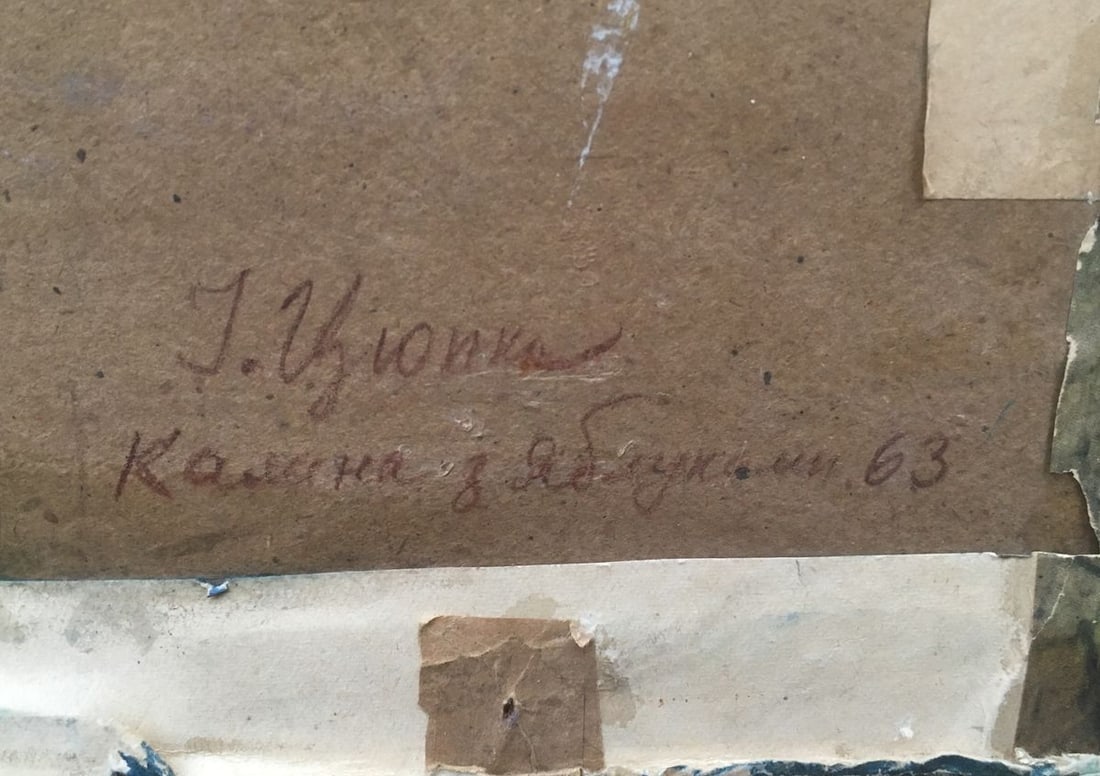 І. Цюпка
Калина з яблуками. 63